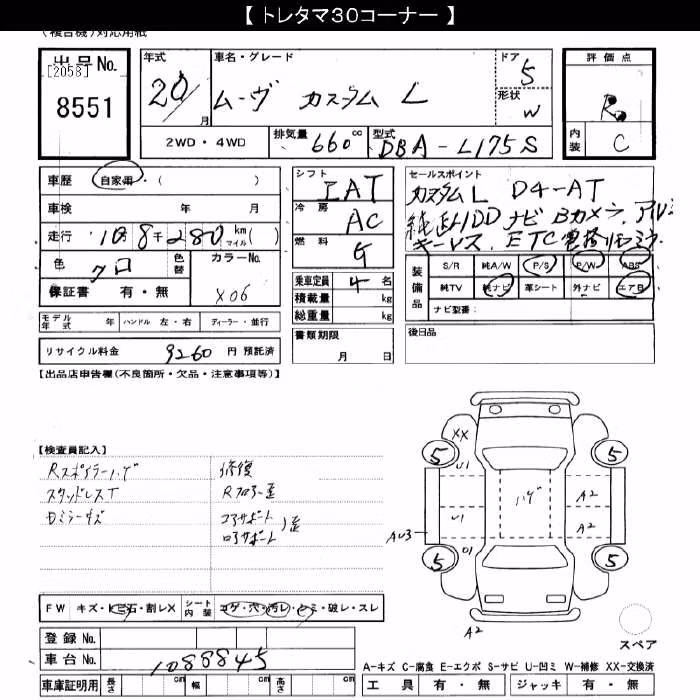 【 トレタマ30コーナー 】
(複合機)対応用紙
出品No.
[2058]
8551
年式 20 月
車名・グレード ムーヴ カスタム L
ドア 5
形状 W
評価点 R
内装 C
2WD・4WD
排気量 660 cc
型式 DBA-L175S
車歴 自家用・( )
車検 年 月
走行 10万8千280 km マイル( )
色 クロ 色替
カラーNo. X06
保証書 有・無
シフト IAT
冷房 AC
燃料 G
乗車定員 4 名
積載量 kg
総重量 kg
セールスポイント
カスタムL D4-AT
純正HDDナビ Bカメラ アルミ
キーレス ETC 電格リモミラー
装備品
S/R 純A/W P/S P/W ABS
純TV 純ナビ 革シート 外ナビ エアB
ナビ型番:
モデル年式 年 ハンドル 左・右 ディーラー・並行
書類期限 月 日
後日品
リサイクル料金 9260 円 預託済
【出品店申告欄(不良箇所・欠品・注意事項等)】
【検査員記入】
Rスポイラーハゲ 修復
スタッドレスT Rフロアー歪
Dミラーキズ コアサポート
ロアサポート 歪
XX
5 5
U1
ハゲ A2
U1 A2
AU3
U1
5 5
A2
FW キズ・トビ石・割レX
シート内装 コゲ・穴・汚レ・シミ・破レ・スレ
登録No.
車台No. 1088845
車庫証明用 長さ cm 幅 cm 高さ cm
スペア
A-キズ C-腐食 E-エクボ S-サビ U-凹ミ W-補修 XX-交換済
工具 有・無 ジャッキ 有・無